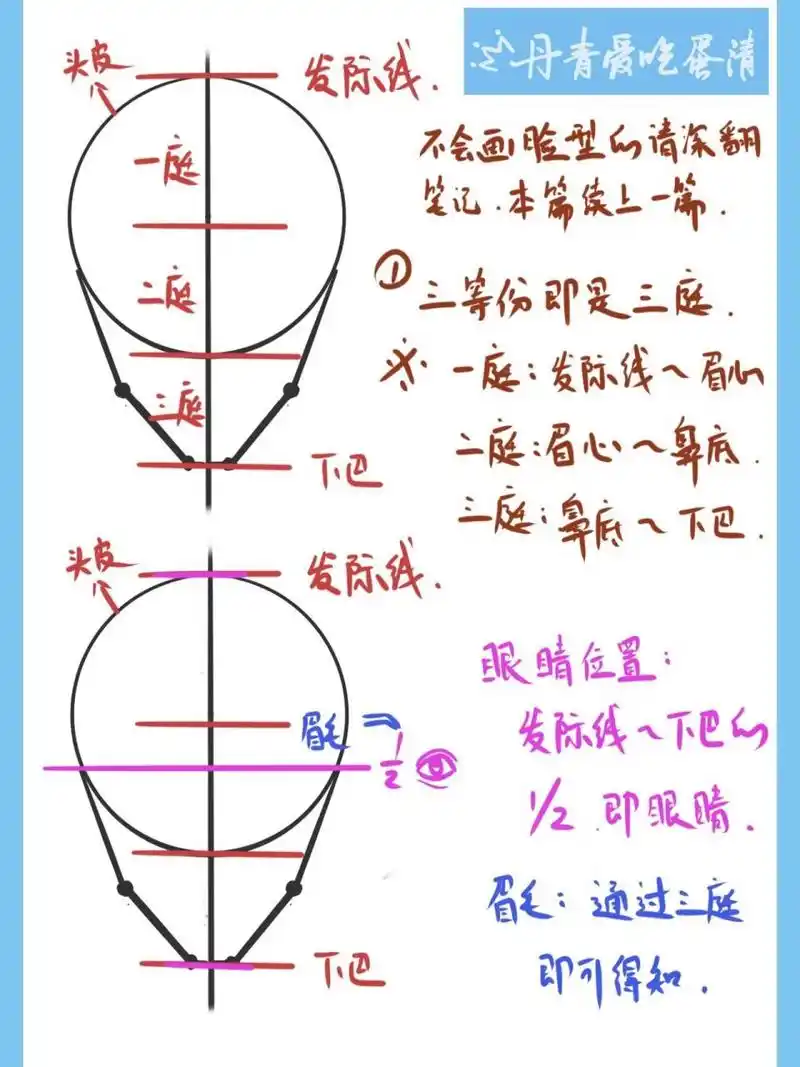 丹青爱吃蛋清
头皮
发际线.
一庭
二庭
三庭
下巴
不会画脸型的请深翻
笔记.本篇续上一篇.
①
三等份即是三庭.
※ 一庭:发际线~眉心
二庭:眉心~鼻底.
三庭:鼻底~下巴.
头皮
发际线.
眉毛
1/2
下巴
眼睛位置:
发际线~下巴的
1/2.即眼睛.
眉毛:通过三庭
即可得知.